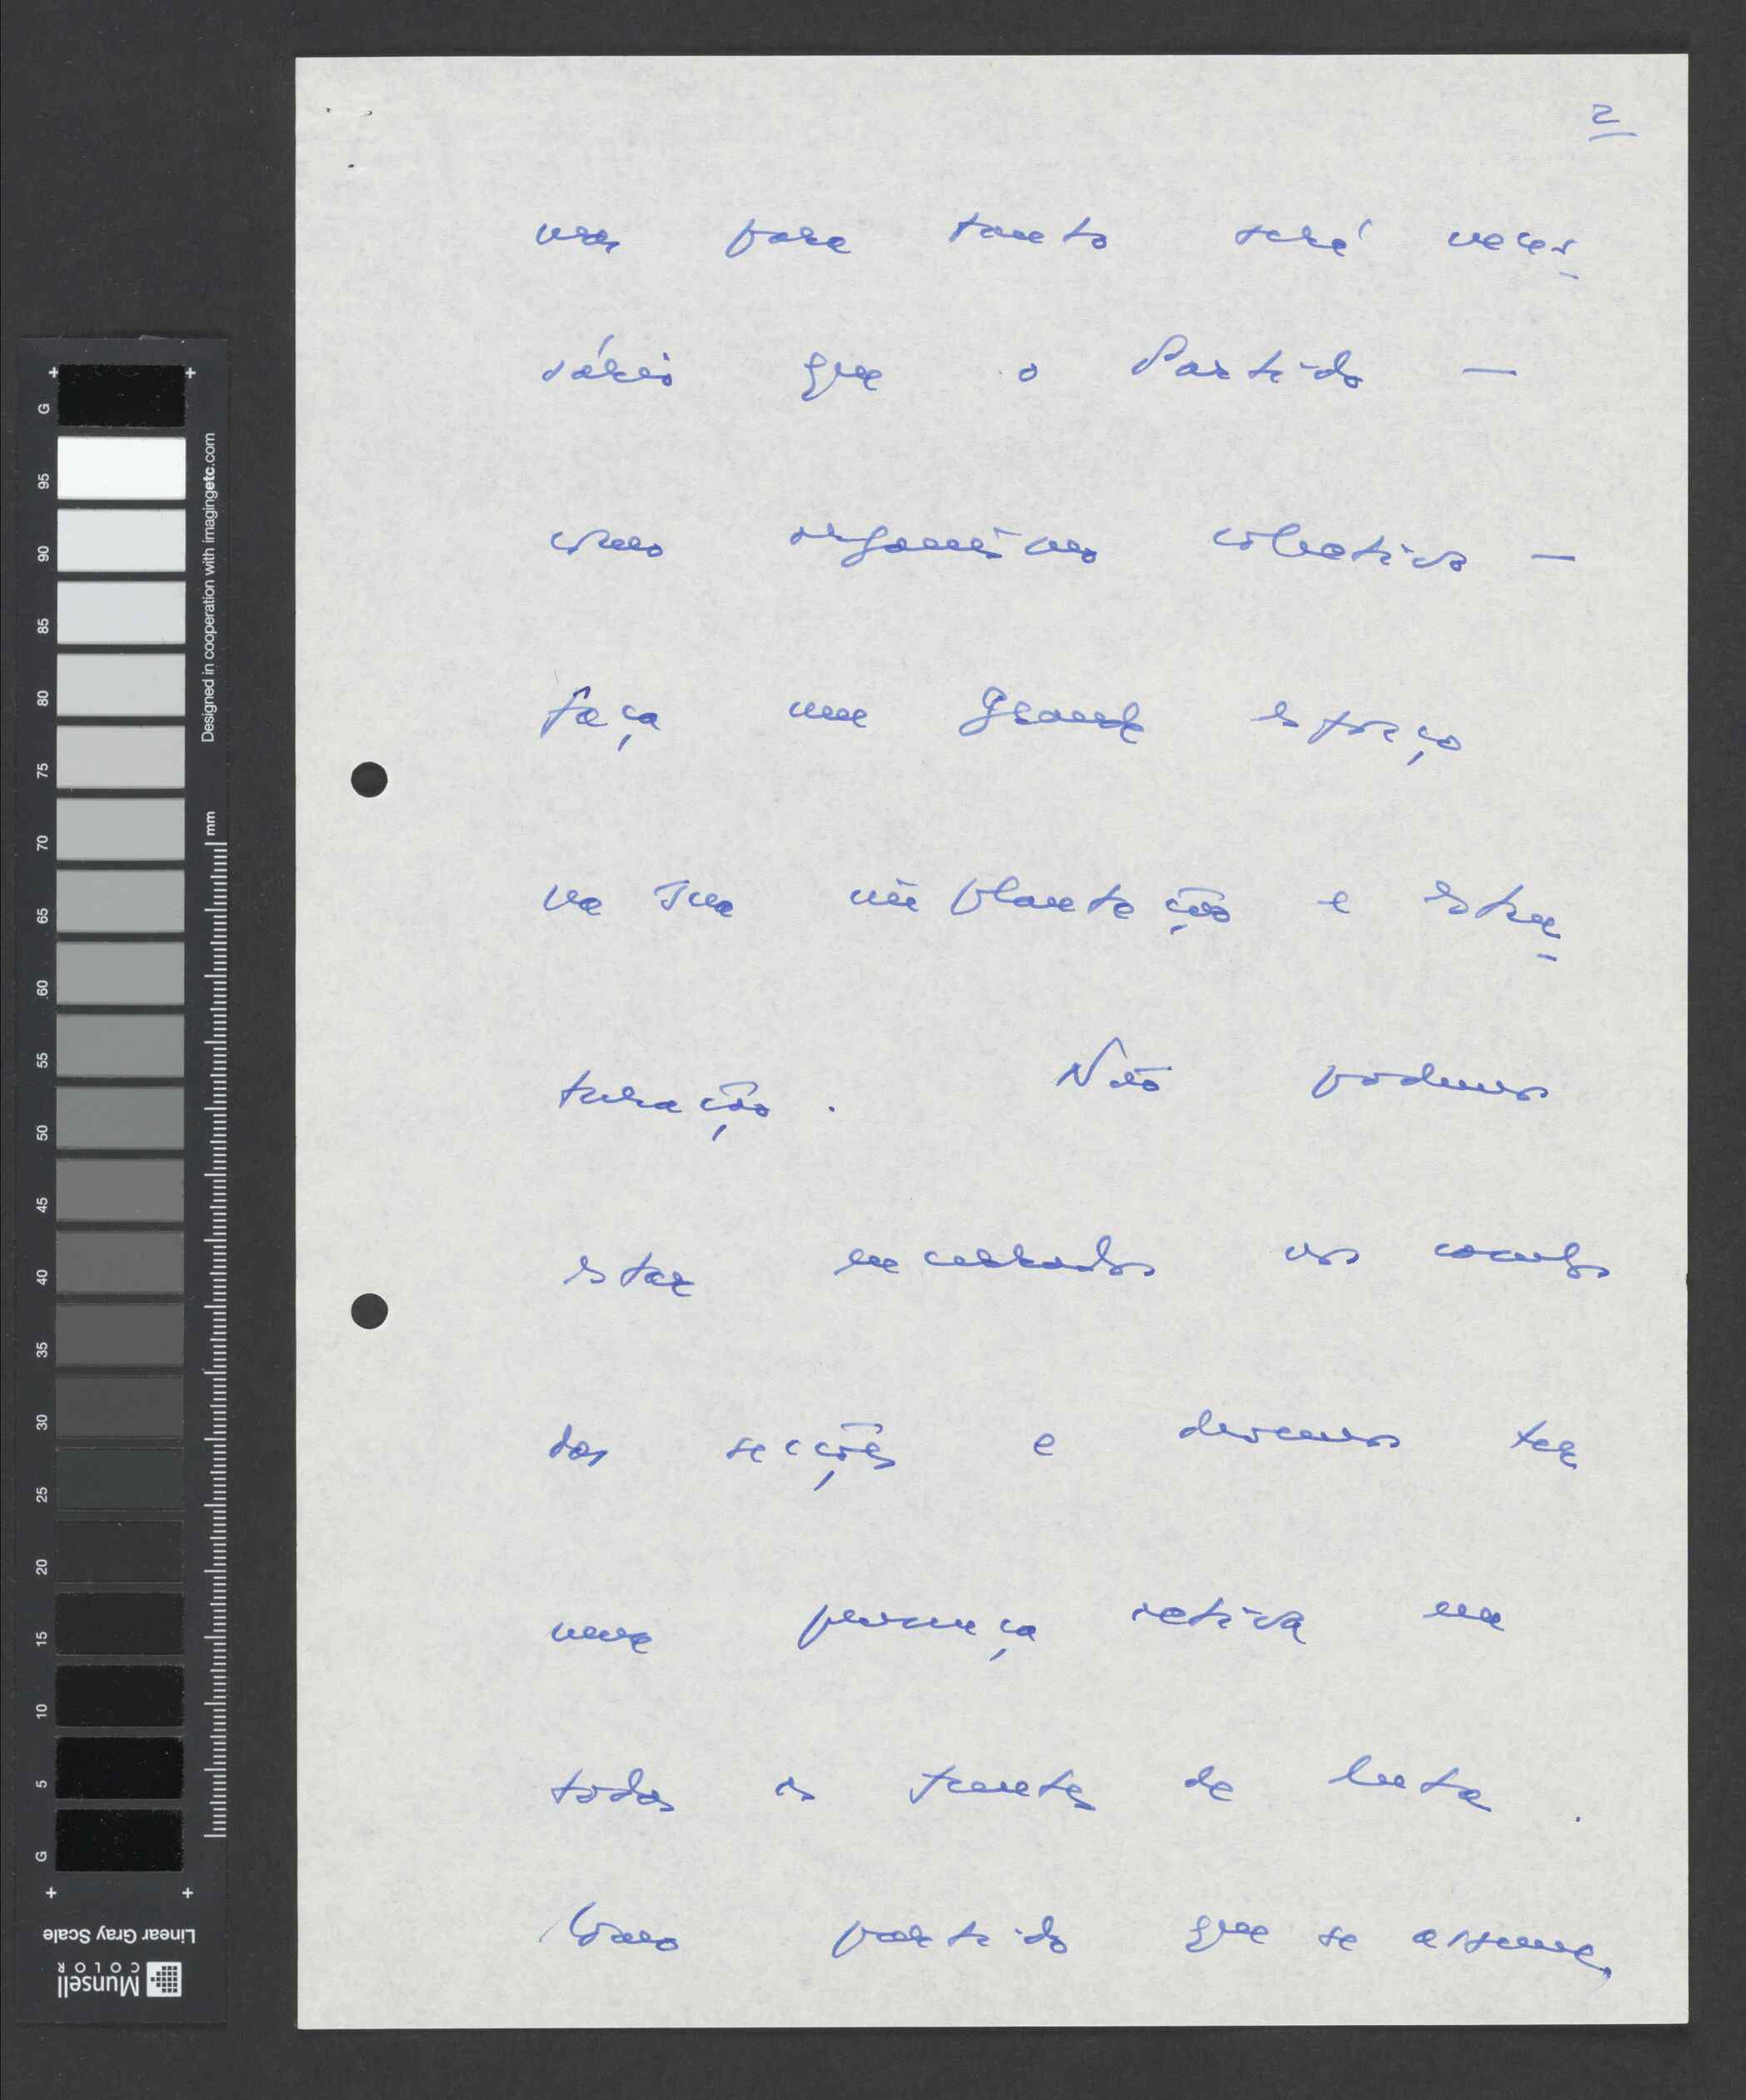 2
mas para tanto será neces-
sário que o Partido —
como organismo colectivo —
faça um grande esforço
na sua implantação e estru-
turação. Não podemos
estar encerrados nos
das secções e devemos ter
uma presença activa em
todas as frentes de luta.
Como partido que se assume,
G
95
90
85
80
75
70
65
60
55
50
45
40
35
30
25
20
15
10
5
G
Designed in cooperation with imagingetc.com
mm
Linear Gray Scale
Munsell
COLOR